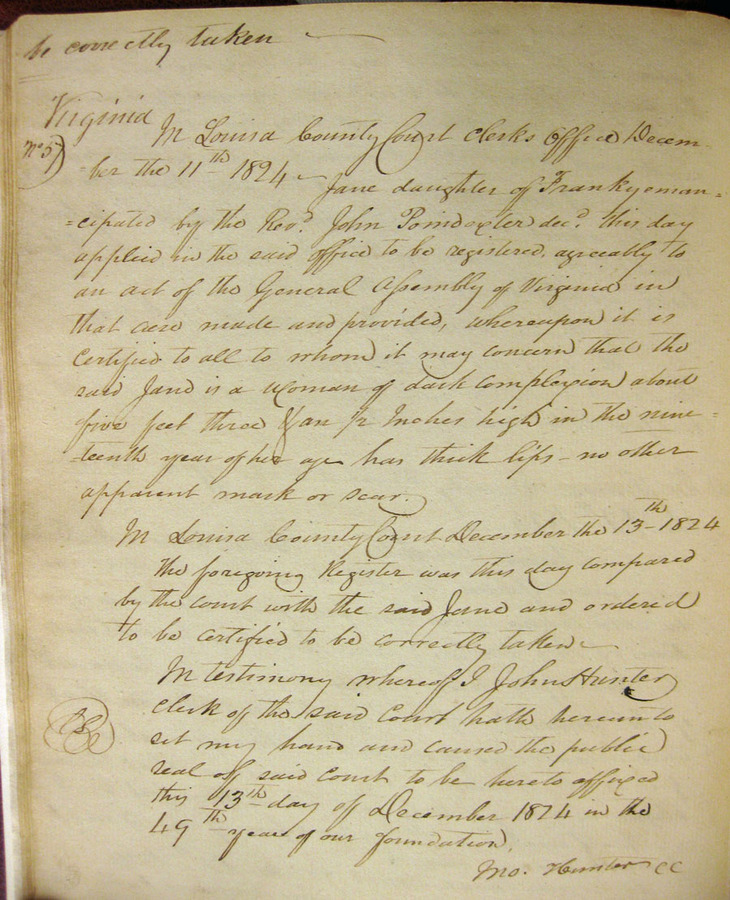 be correctly taken
Virginia
In Louisa County Court Clerks Office Decem-
No 57
=ber the 11th 1824 - Jane daughter of Franky eman=
=cipated by the Revd. John Poindexter decd. this day
applied in the said office to be registered, agreeably to
an act of the General Assembly of Virginia in
that case made and provided, whereupon it is
Certified to all to whom it may concern that the
said Jane is a woman of dark complexion about
five feet three & an 1/2 Inches high in the nine=
=teenth year of her age has thick lips - no other
apparent mark or scar.
In Louisa County Court December the 13th 1824
The foregoing Register was this day compared
by the court with the said Jane and ordered
to be certified to be correctly taken
In testimony whereof I John Hunter
Clerk of the said Court hath hereunto
set my hand and caused the public
seal of said court to be hereto affixed
this 13th day of December 1824 in the
49th year of our foundation.
Jno. Hunter CC